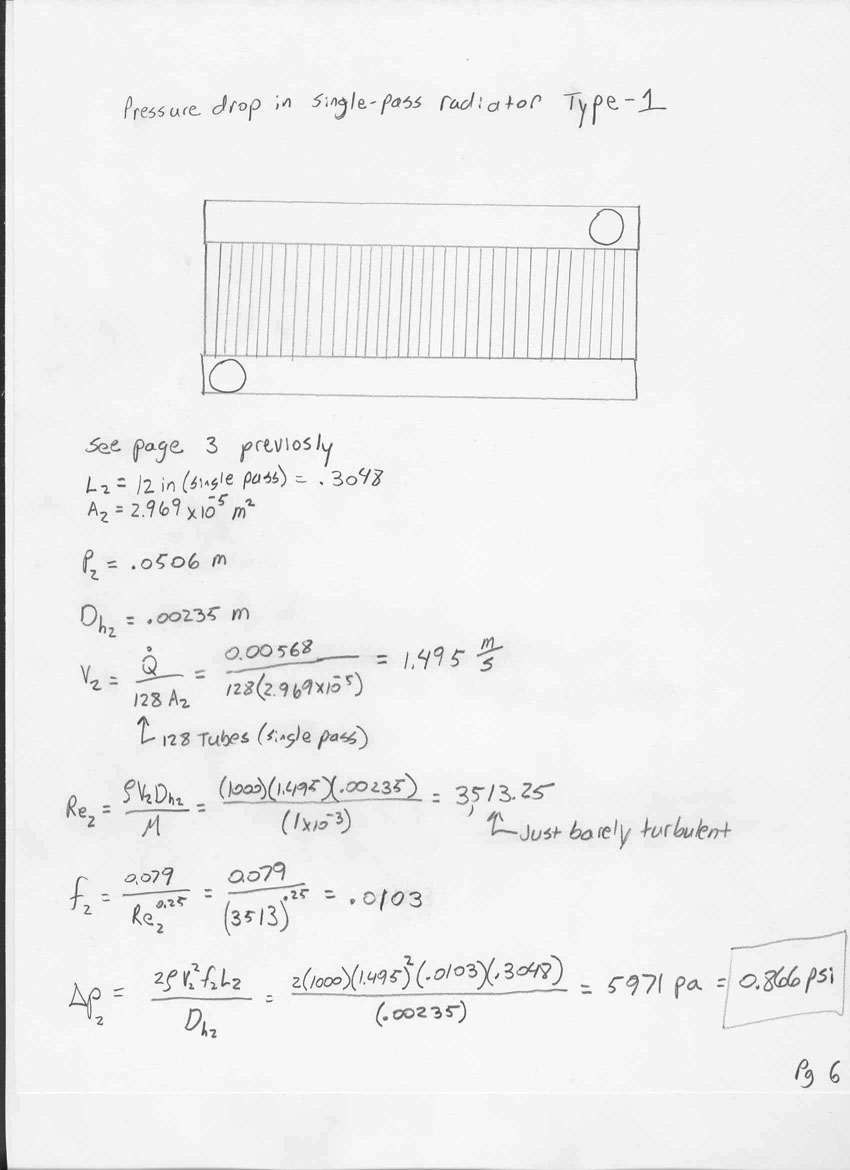 Pressure drop in single-pass radiator Type-1
See page 3 previosly
L₂ = 12 in (single pass) = .3048
A₂ = 2.969 x10⁻⁵ m²
P₂ = .0506 m
Dh₂ = .00235 m
V₂ = Q̇ / 128 A₂ = 0.00568 / 128(2.969x10⁻⁵) = 1.495 m/s
↑ 128 Tubes (single pass)
Re₂ = ρV₂Dh₂ / μ = (1000)(1.495)(.00235) / (1x10⁻³) = 3,513.25
↑ Just barely turbulent
f₂ = 0.079 / Re₂^0.25 = 0.079 / (3513)^.25 = .0103
Δp₂ = 2ρV₂²f₂L₂ / Dh₂ = 2(1000)(1.495)²(.0103)(.3048) / (.00235) = 5971 pa = 0.866 psi
Pg 6